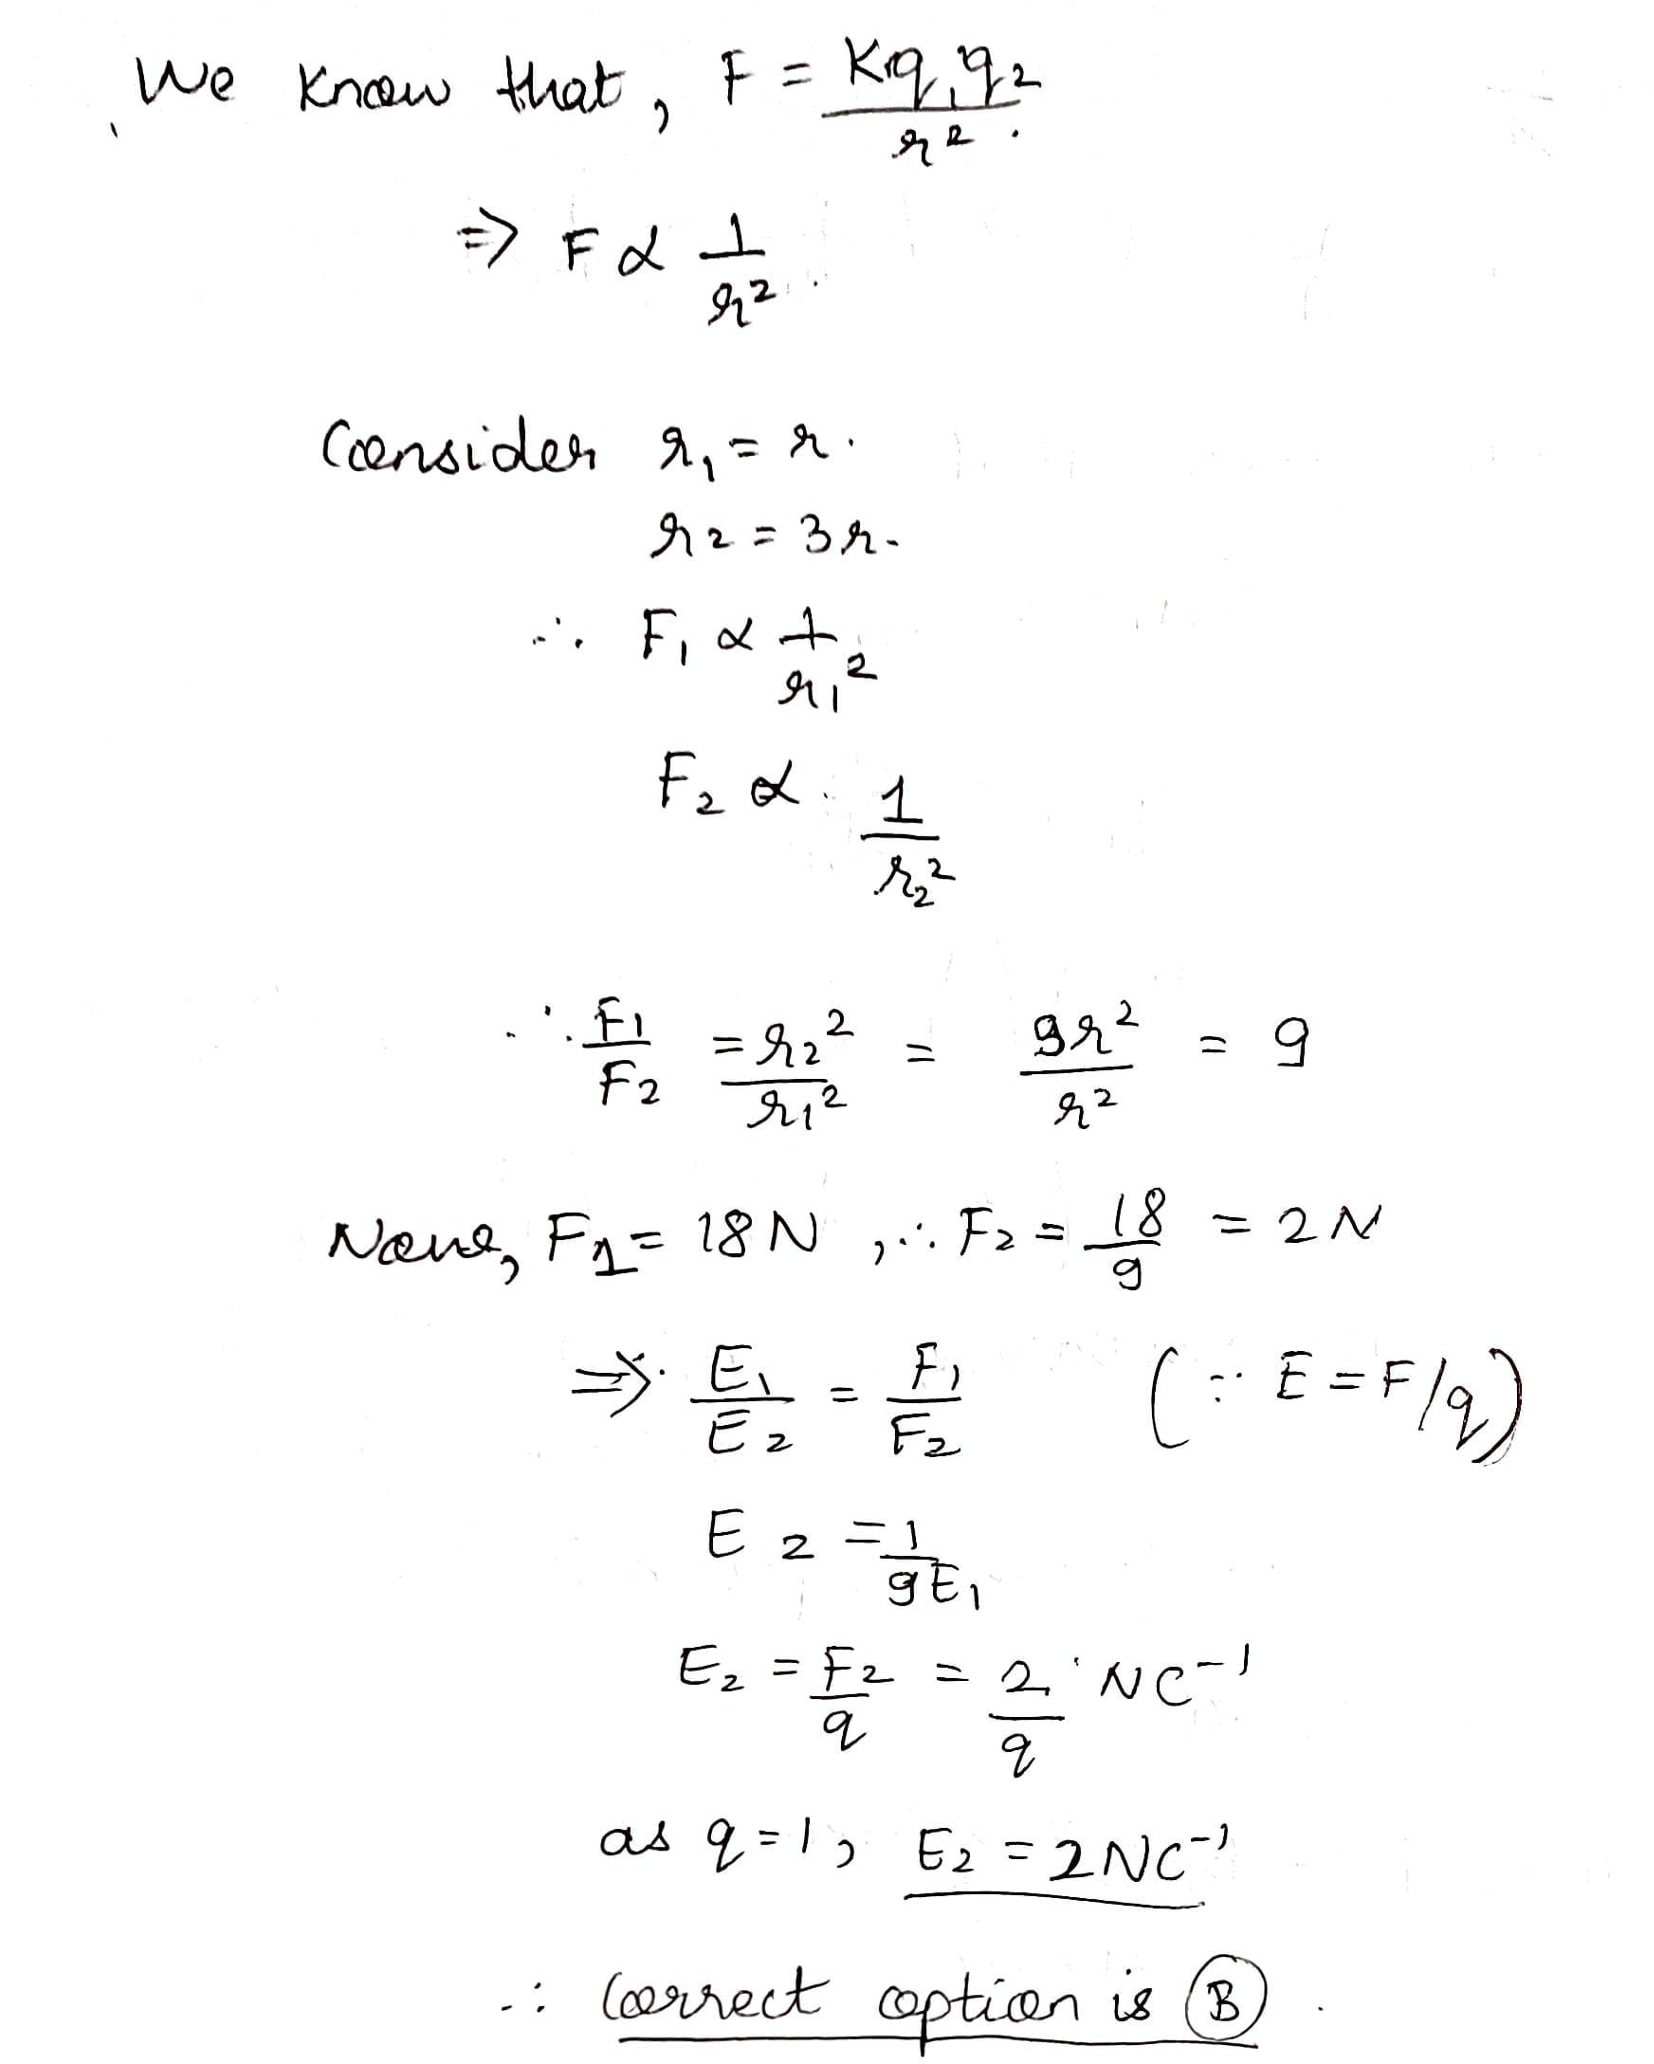 We know that, F = Kq₁q₂/r².
⇒ F α 1/r².
Consider r₁ = r.
r₂ = 3r.
∴ F₁ α 1/r₁²
F₂ α 1/r₂²
∴ F₁/F₂ = r₂²/r₁² = 9r²/r² = 9
Now, F₁ = 18N, ∴ F₂ = 18/9 = 2N
⇒ E₁/E₂ = F₁/F₂ (∵ E = F/q)
E₂ = 1/9E₁
E₂ = F₂/q = 2/q NC⁻¹
as q = 1, E₂ = 2NC⁻¹
∴ Correct option is B.